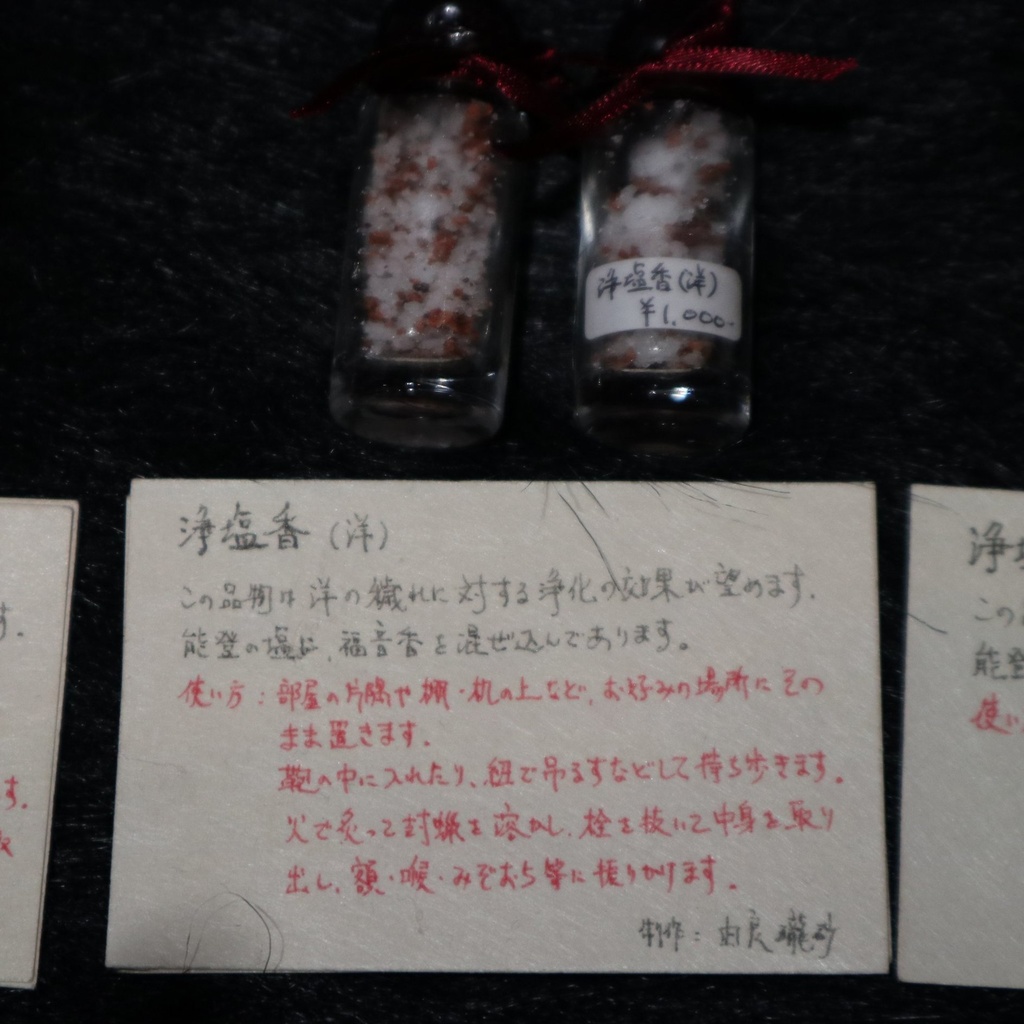 浄塩香(洋)
¥1,000-
浄塩香(洋)
この品物は洋の穢れに対する浄化の効果が望めます.
能登の塩に、福音香を混ぜ込んであります。
使い方:部屋の片隅や棚・机の上など、お好みの場所にその
まま置きます.
鞄の中に入れたり、紐で吊るすなどして持ち歩きます.
火で炙って封蝋を溶かし、栓を抜いて中身を取り
出し、額・喉・みぞおち等に振りかけます.
制作:由良瓏砂
す.
す.
浄
この
能登
使い